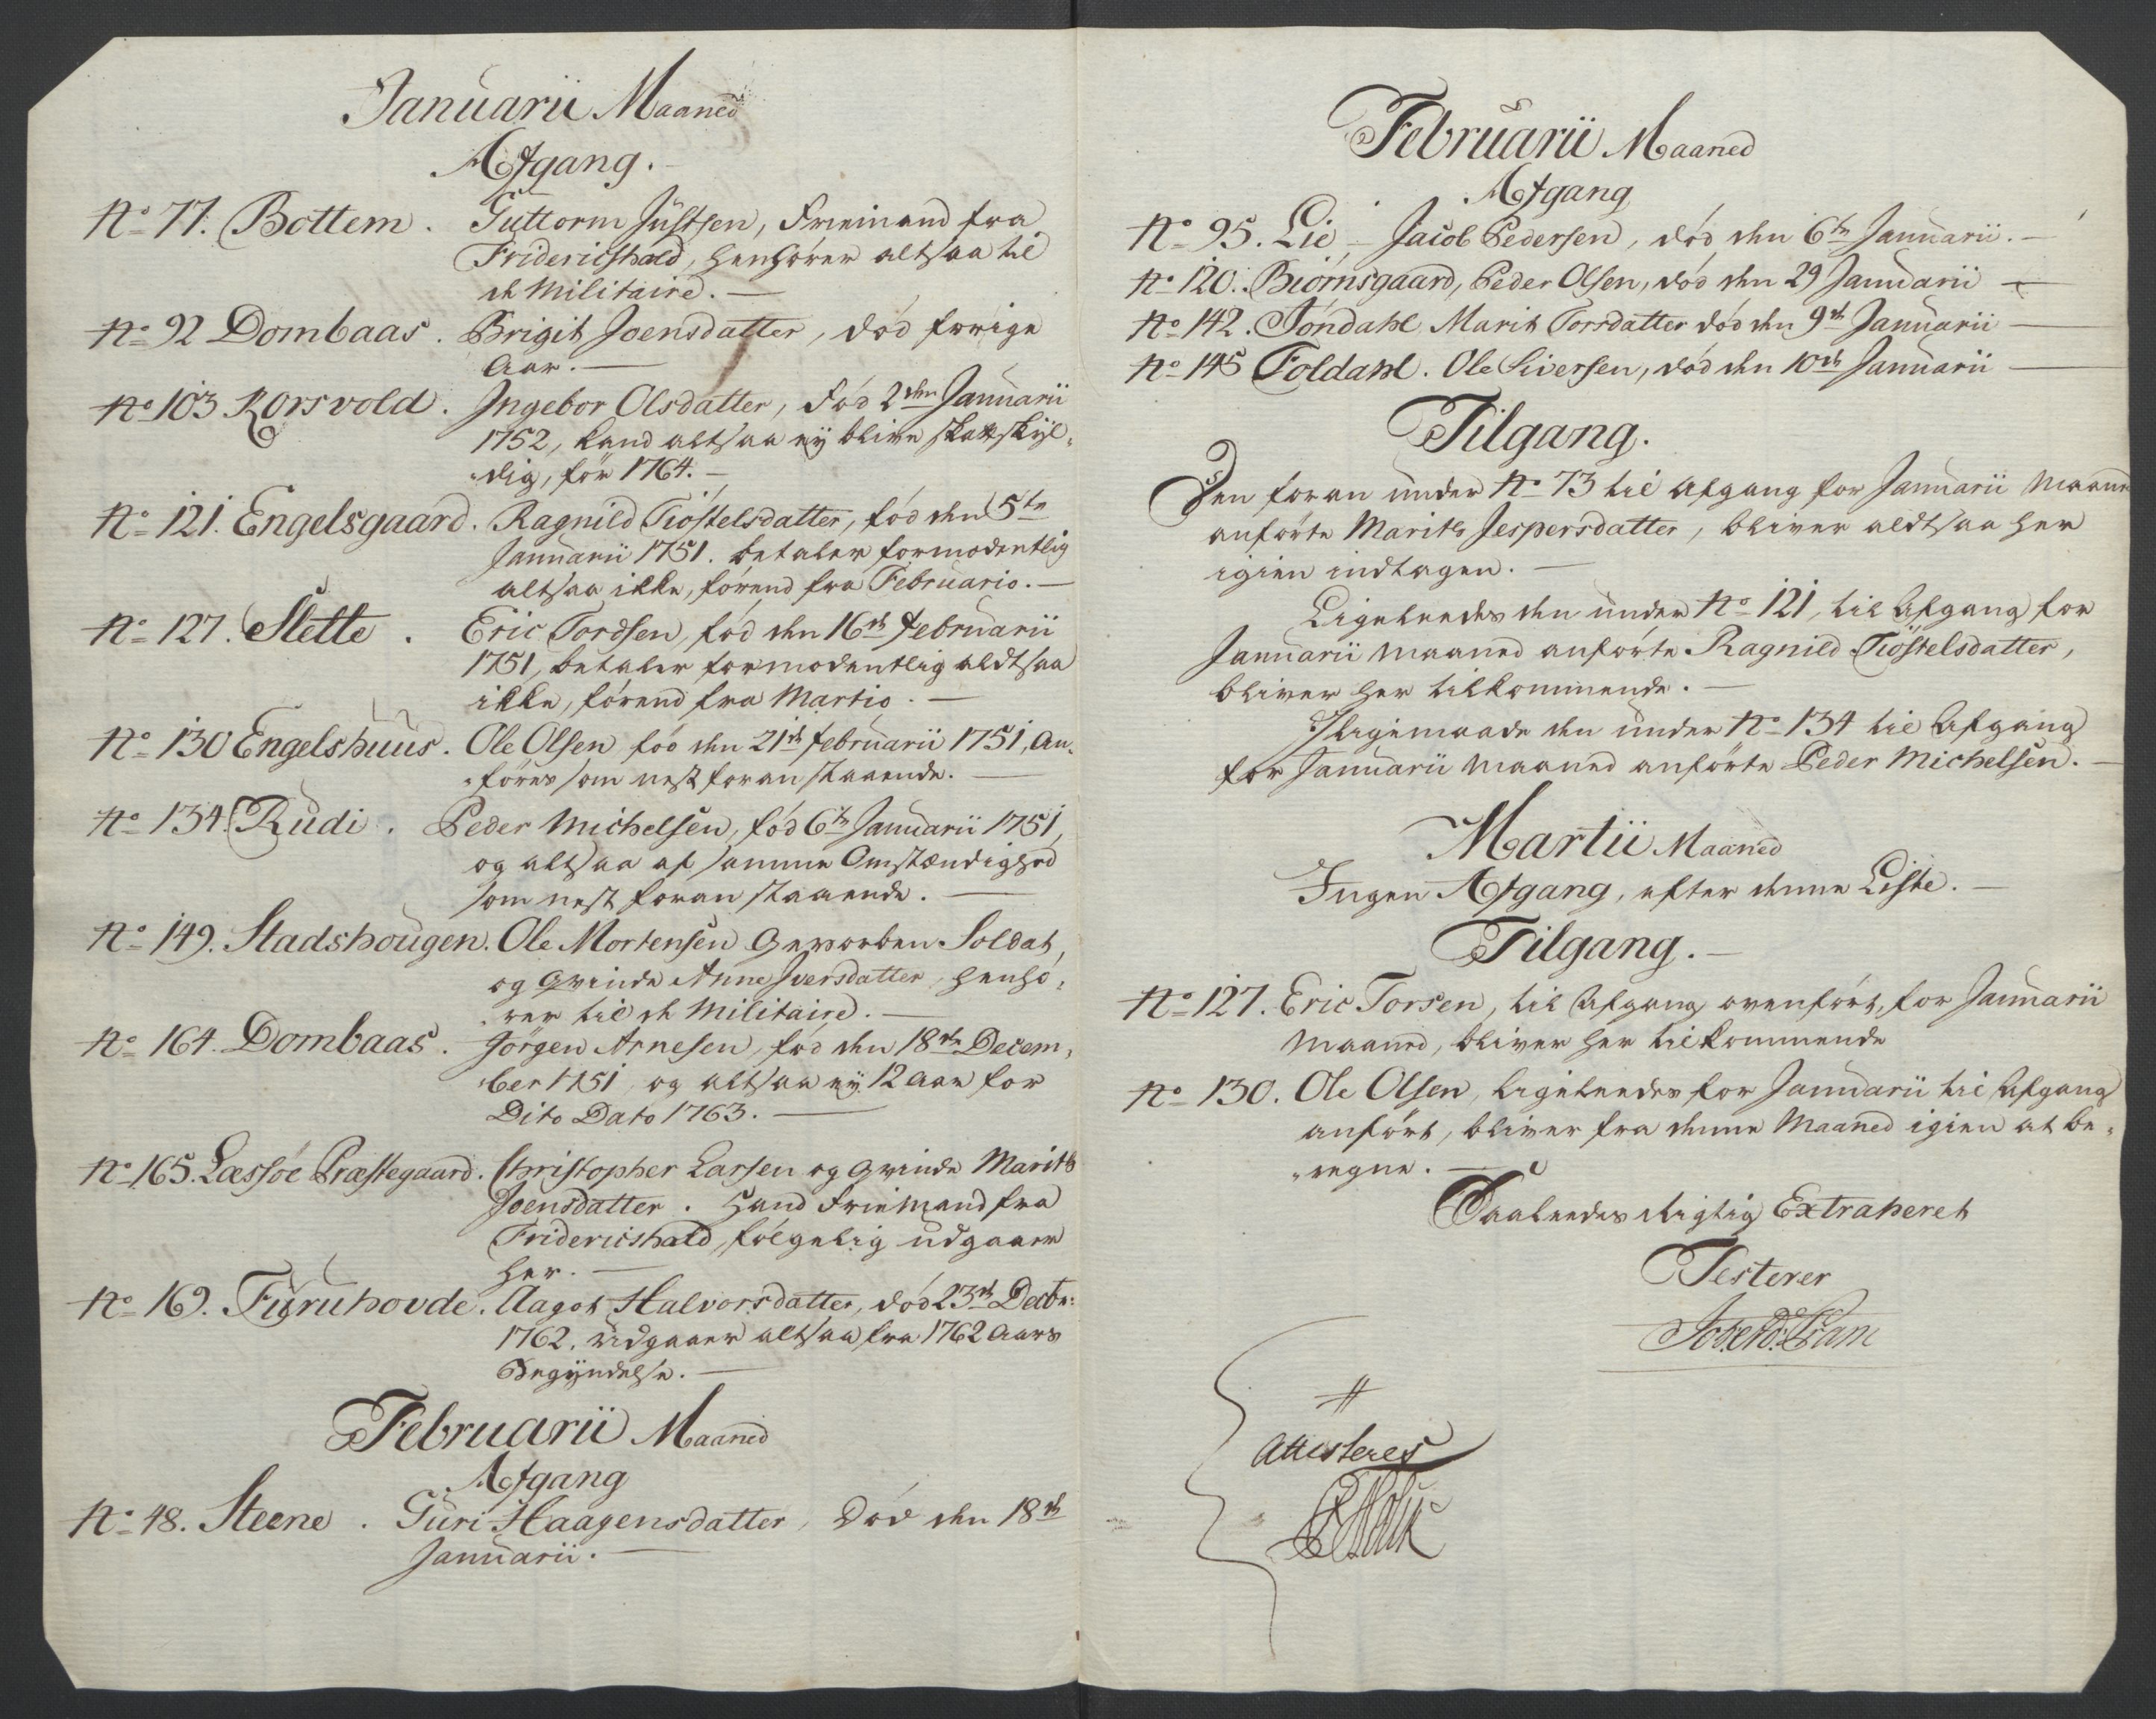 Januarii Maaned
Afgang.
No 77. Bottem. Guttorm Justsen, Friemand fra
Fridericshald, henhører altsaa til
de Militaire.
No 92 Dombaas. Brigit Joensdatter, død forige
Aar.
No 103 Korsvold. Ingebor Olsdatter, fød 2den Januarii
1752, kand altsaa ey blive skatskyl-
dig, før 1764.
No 121. Engelsgaard. Ragnild Tiøstelsdatter, fød den 5te
Januarii 1751. betaler formodentlig
altsaa ikke, førend fra Februario.
No 127. Slette. Eric Tordsen, fød den 16de Februarii
1751, betaler formodentlig aldtsaa
ikke, førend fra Martio.
No 130 Engelshuus. Ole Olsen fød den 21de Februarii 1751, an-
føres som nest foranstaaende.
No 134. Rudi. Peder Michelsen, fød 6te Januarii 1751,
og altsaa af samme Omstændighed
som nest foranstaaende.
No 149. Stadshougen. Ole Mortensen Geworben Soldat,
og Qvinde Anne Iversdatter, henhø-
rer til de Militaire.
No 164. Dombaas. Jørgen Arnesen, fød den 18de Decem-
ber 1751, og altsaa ey 12 Aar for
Dito Dato 1763.
No 165. Læssøe Præstegaard. Christopher Larsen og Qvinde Marith
Joensdatter. Hand Friemand fra
Fridericshald, følgelig udgaaer
her.
No 169. Furuhovde. Aagot Halvorsdatter, død 23de Decbr:
1762. udgaaer altsaa fra 1762 Aars
Begyndelse.
Februarii Maaned
Afgang
No 48. Steene. Guri Haagensdatter, Død den 18de
Januarii.
Februarii Maaned
Afgang
No 95. Lie, Jacob Pedersen, død den 6te Januarii.
No 120. Biørnsgaard, Peder Olsen, død den 29 Januarii
No 142. Jøndahl Marit Torsdatter død den 9de Januarii
No 145 Foldahl. Ole Siversen, død den 10de Januarii
Tilgang.
Den foran under No 73 til Afgang for Januarii Maaned
anførte Marith Jespersdatter, bliver aldtsaa her
igien indtagen.
Ligeleedes den under No 121, til Afgang for
Januarii Maaned anførte Ragnild Tiøstelsdatter,
bliver her tilkommende.
Iligemaade den under No 134 til Afgang
for Januarii Maaned anførte Peder Michelsen.
Martii Maaned
Ingen Afgang, efter denne Liste.
Tilgang.
No 127. Eric Torsen, til Afgang ovenført, for Januarii
Maaned, bliver her tilkommende
No 130. Ole Olsen, ligeleedes for Januarii til Afgang
anført, bliver fra denne Maaned igien at be-
regne.
Saaleedes rigtig Extraheret
Testerer
Attesteres